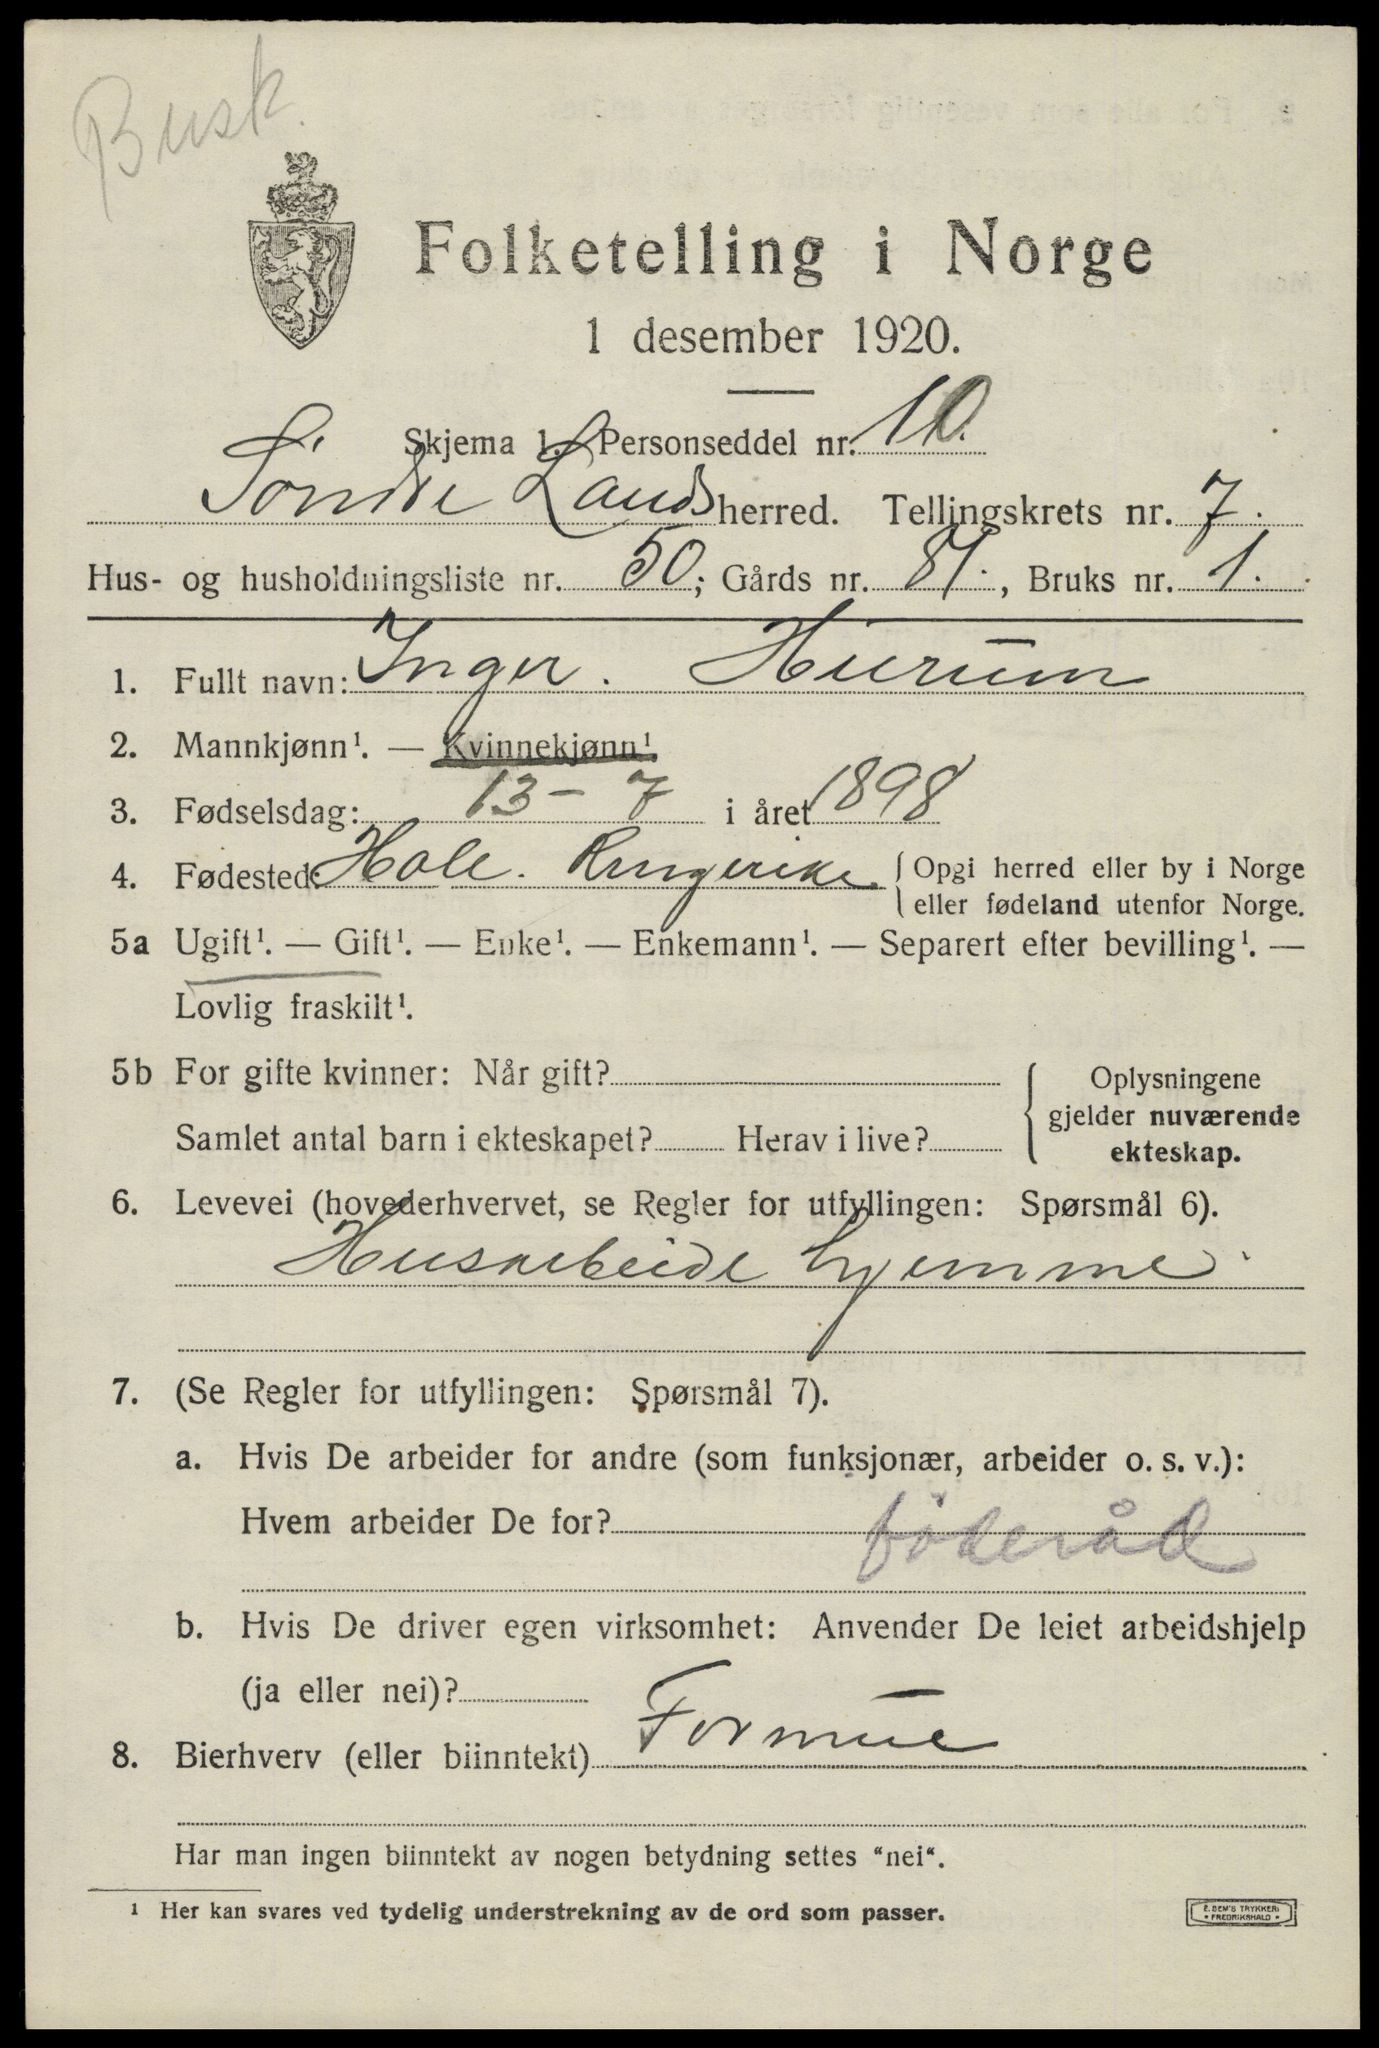 Busk.
Folketelling i Norge
1 desember 1920.
Skjema 1. Personseddel nr. 10.
Søndre Lands herred. Tellingskrets nr. 7.
Hus- og husholdningsliste nr. 50; Gårds nr. 81., Bruks nr. 1.
1. Fullt navn: Inger. Hurum
2. Mannkjønn¹. — Kvinnekjønn¹
3. Fødselsdag: 13 - 7 i året 1898
4. Fødested: Hole. Ringerike { Opgi herred eller by i Norge
eller fødeland utenfor Norge.
5a Ugift¹. — Gift¹. — Enke¹. — Enkemann¹. — Separert efter bevilling¹. —
Lovlig fraskilt¹.
5b For gifte kvinner: Når gift?
Samlet antal barn i ekteskapet? Herav i live?
{ Oplysningene
gjelder nuværende
ekteskap.
6. Levevei (hovederhvervet, se Regler for utfyllingen: Spørsmål 6).
Husarbeide hjemme
7. (Se Regler for utfyllingen: Spørsmål 7).
a. Hvis De arbeider for andre (som funksjonær, arbeider o. s. v.):
Hvem arbeider De for? föderåd
b. Hvis De driver egen virksomhet: Anvender De leiet arbeidshjelp
(ja eller nei)?
8. Bierhverv (eller biinntekt) Formue
Har man ingen biinntekt av nogen betydning settes "nei".
¹ Her kan svares ved tydelig understrekning av de ord som passer.
E. SEM'S TRYKKERI
• FREDRIKSHALD •